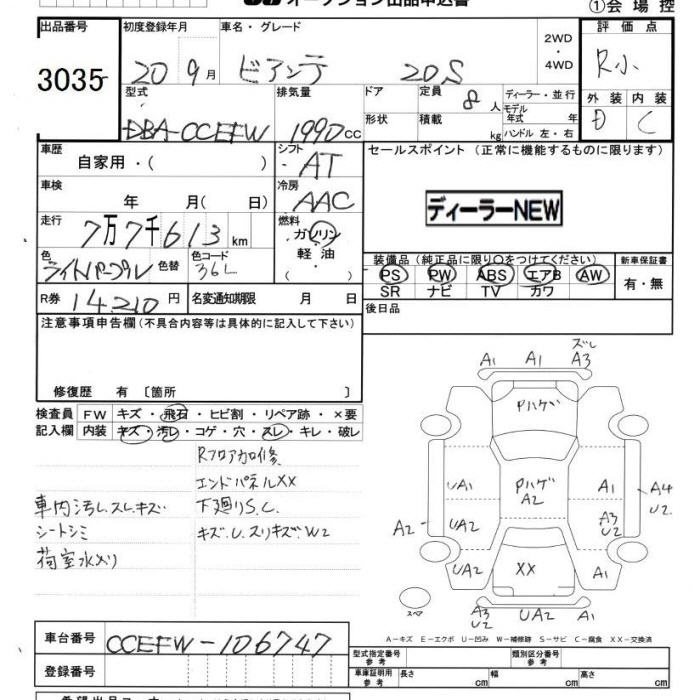 オークション出品申込書 ①会場控
出品番号 初度登録年月 車名・グレード 2WD・4WD 評価点
3035 20 9月 ビアンテ 20S R小
型式 排気量 ドア 定員 8人 ディーラー・並行 外装 内装
DBA-CCEFW 1990cc 形状 積載 kg モデル年式 年 ハンドル 左・右 D C
車歴 自家用・( ) シフト AT セールスポイント(正常に機能するものに限ります)
車検 年 月( 日) 冷房 AAC
ディーラーNEW
走行 7万7千613km 燃料 ガソリン・軽油・( )
色 ライトパープル 色替 色コード 36L
装備品(純正品に限り○をつけてください) 新車保証書
PS PW ABS エアB AW 有・無
SR ナビ TV カワ
R券 14210円 名変通知期限 月 日 後日品
注意事項申告欄(不具合内容等は具体的に記入して下さい)
修復歴 有 〔箇所 〕
検査員記入欄 FW キズ・飛石・ヒビ割・リペア跡・×要
内装 キズ・汚レ・コゲ・穴・スレ・キレ・破レ
Rフロア加修
エンドパネルXX
車内汚レ.スレ.キズ 下廻りS.C
シートシミ キズ.U.スリキズ.W2
荷室水メリ
ズレ
A1 A1 A3
Pハゲ
UA1 Pハゲ A2 A1 A4 U2
A2 UA2 A3 U2
UA2 XX A1
スペア A3 U2 UA2 A1
A−キズ E−エクボ U−凹み W−補修跡 S−サビ C−腐食 XX−交換済
車台番号 CCEFW-106747
型式指定番号 参考 類別区分番号 参考
登録番号 車庫証明用 参考 長さ cm 幅 cm 高さ cm